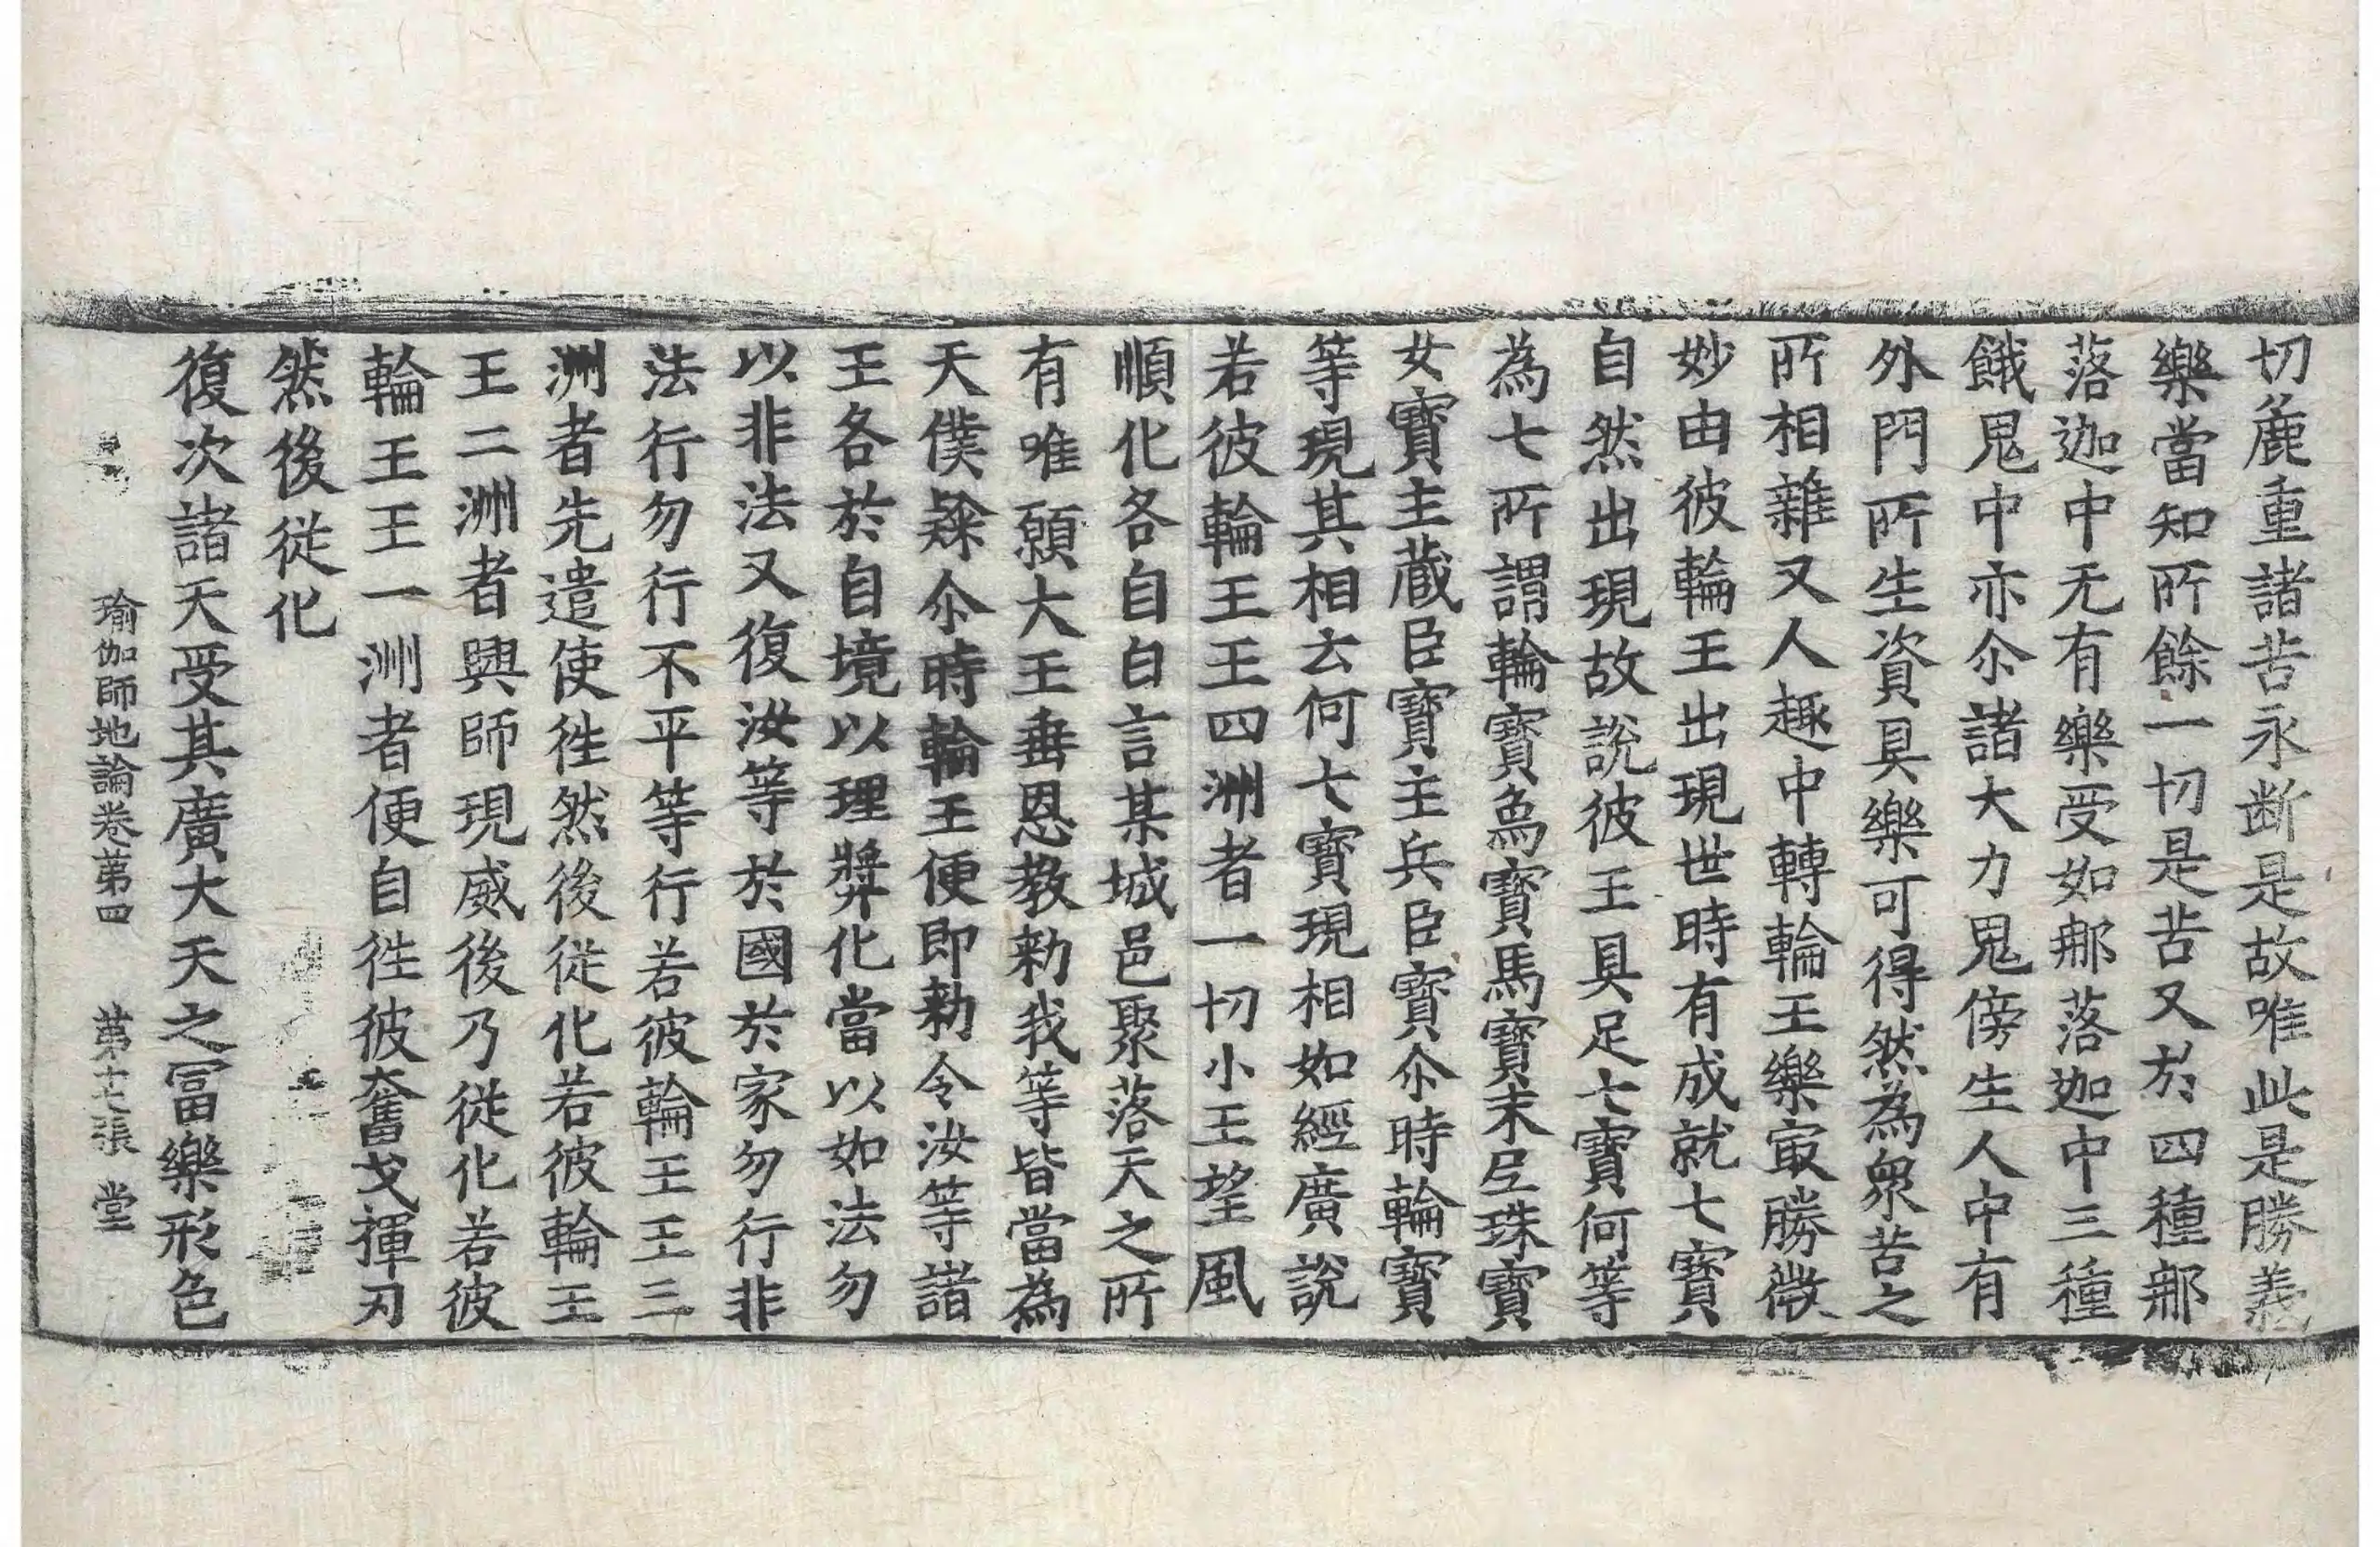 切麁重諸苦永断是故唯此是勝義
樂當知所餘一切是苦又於四種那
落迦中无有樂受如那落迦中三種
餓鬼中亦尒諸大力鬼傍生人中有
外門所生資具樂可得然為衆苦之
所相雜又人趣中轉輪王樂㝡勝微
妙由彼輪王出現世時有成就七寶
自然出現故說彼王具足七寶何等
為七所謂輪寶象寶馬寶末尼珠寶
女寶主蔵臣寶主兵臣寶尒時輪寶
等現其相云何七寶現相如經廣說
若彼輪王王四洲者一切小王望風
順化各自白言某城邑聚落天之所
有唯願大王垂恩教勑我等皆當為
天僕𨽻尒時輪王便即勑令汝等諸
王各於自境以理獎化當以如法勿
以非法又復汝等於國於家勿行非
法行勿行不平等行若彼輪王王三
洲者先遣使徃然後従化若彼輪王
王二洲者興師現威後乃従化若彼
輪王王一洲者便自徃彼奮戈揮刃
然後従化
復次諸天受其廣大天之冨樂形色
瑜伽師地論卷苐四 苐十七張 堂